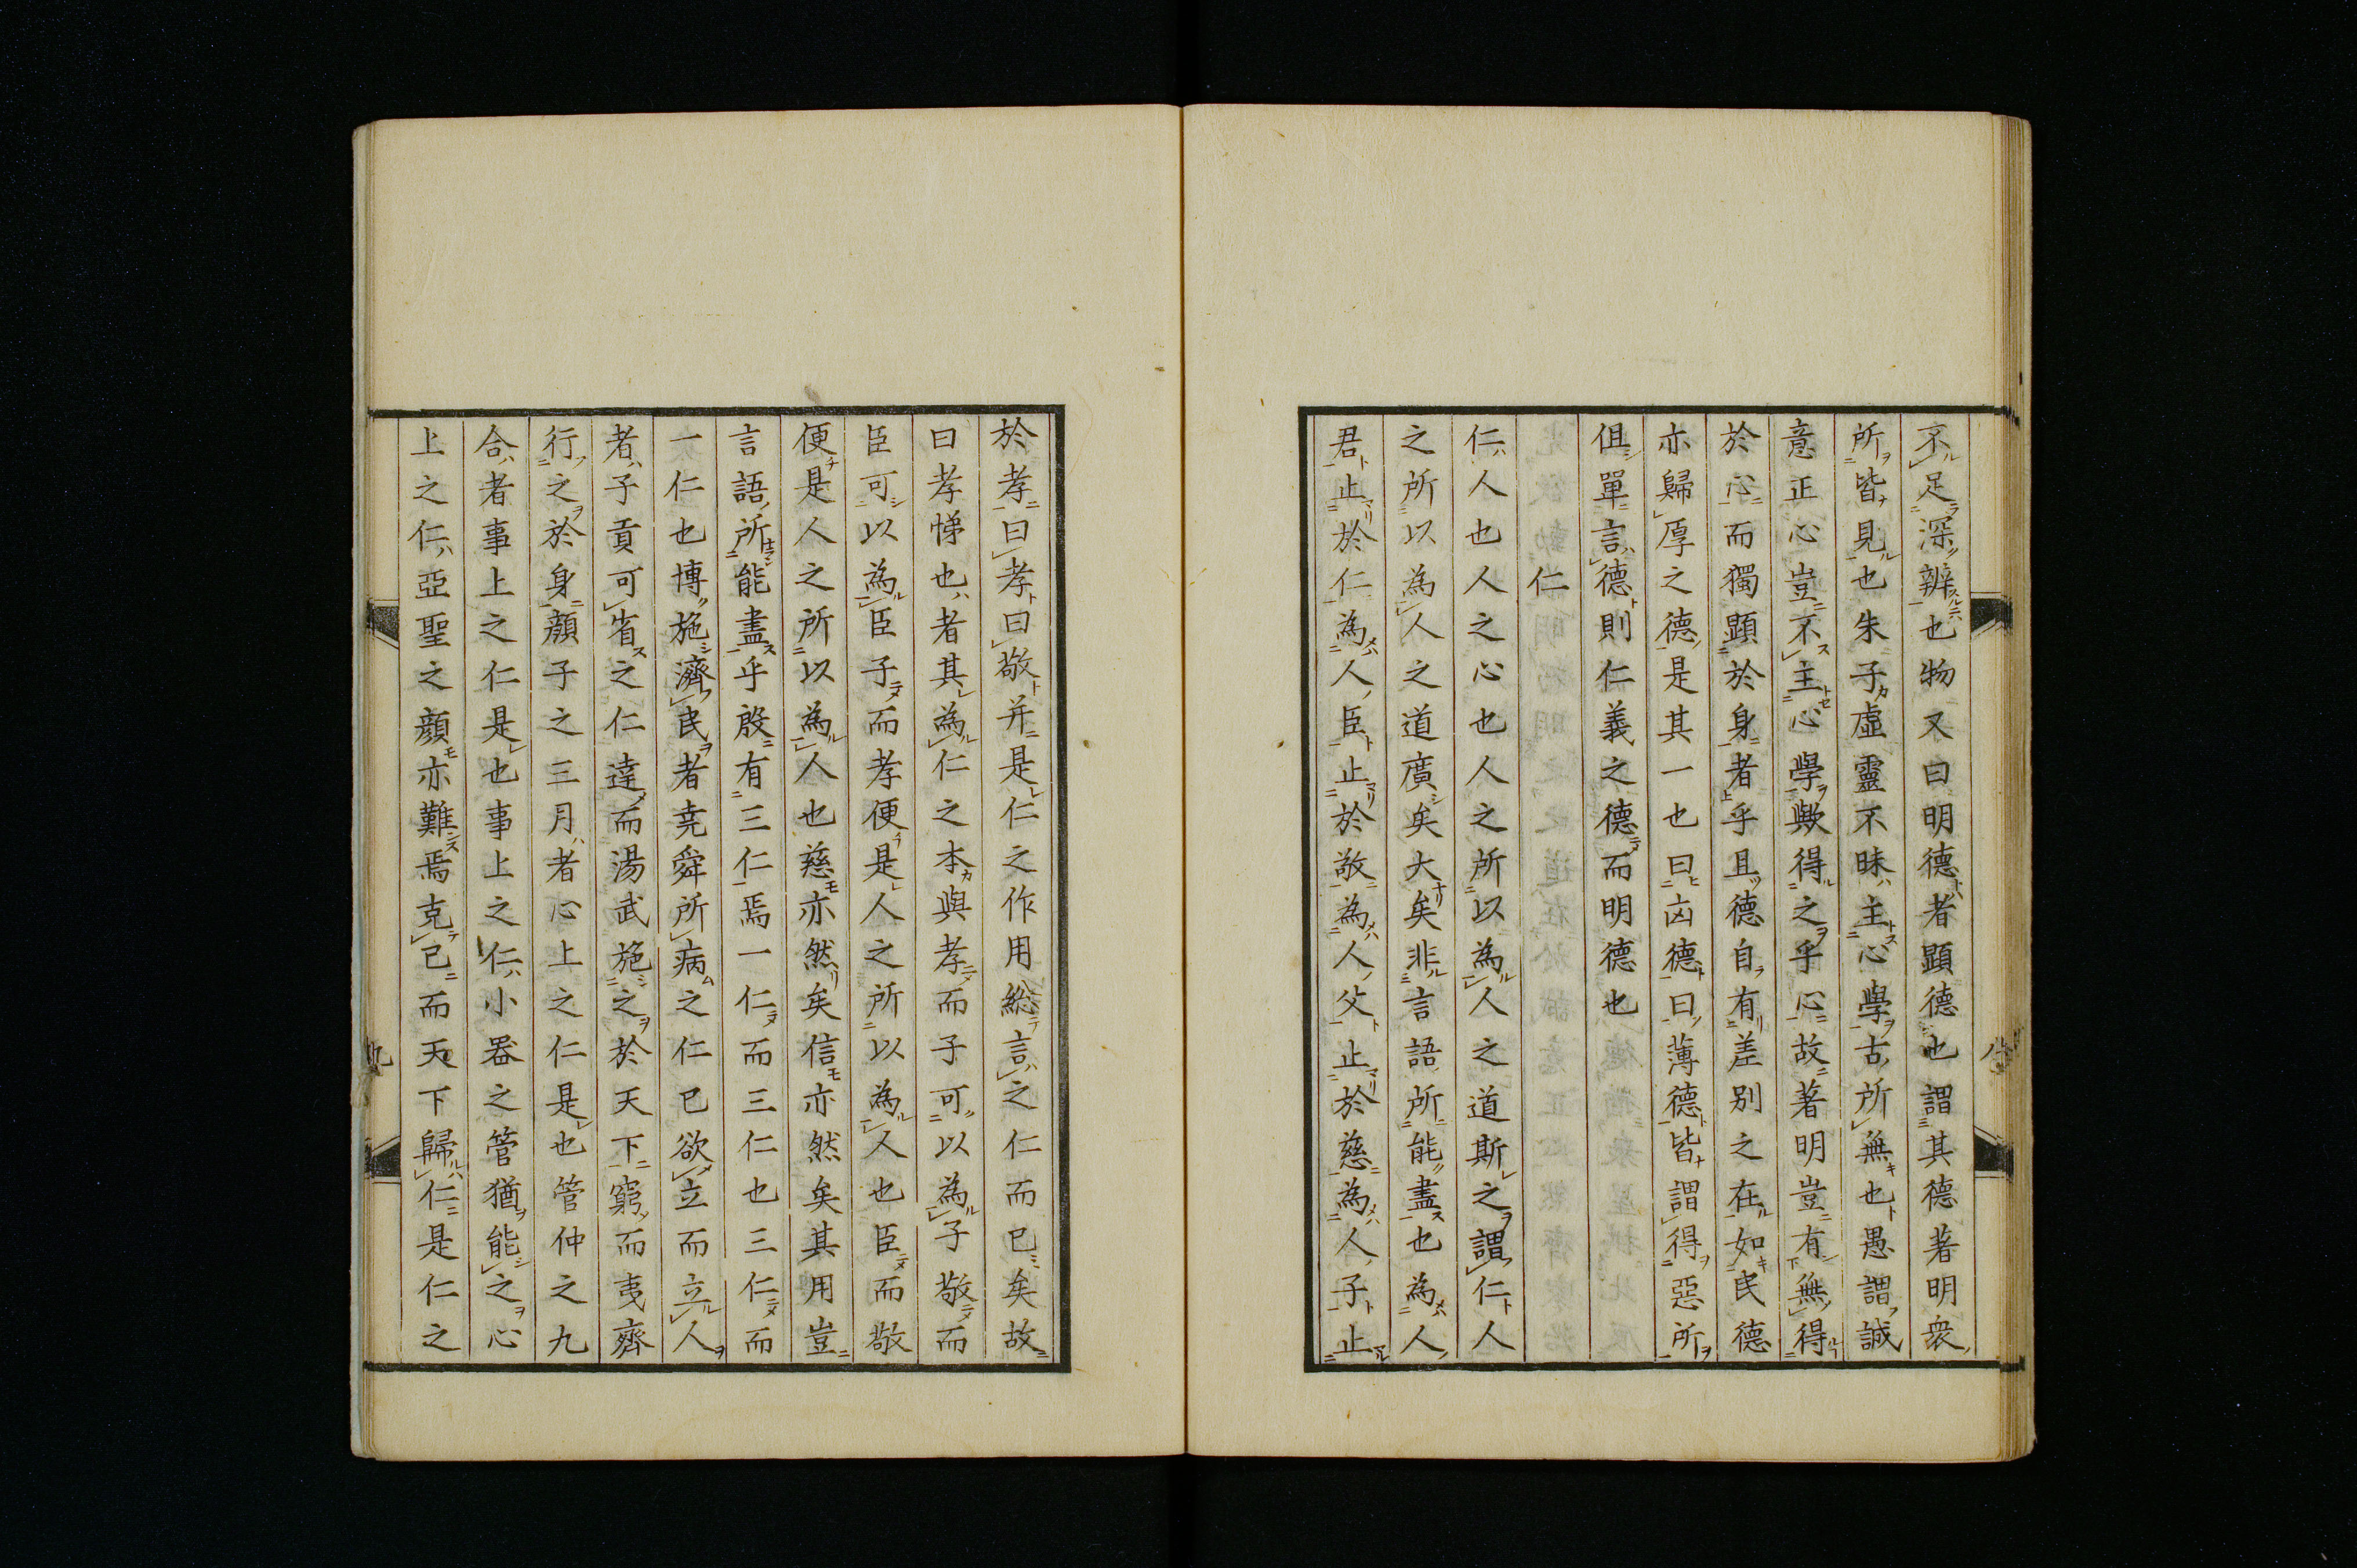 不足深辨也物又曰明德者顯德也謂其德著明衆
所皆見也朱子虛靈不昧主心學古所無也愚謂誠
意正心豈不主心學歟得之乎心故著明豈有無得
於心而獨顯於身者乎且德自有差別之在如民德
亦歸厚之德是其一也曰凶德曰薄德皆謂得惡所
但單言德則仁義之德而明德也
仁
仁人也人之心也人之所以為人之道斯之謂仁人
之所以為人之道廣矣大矣非言語所能盡也為人
君止於仁為人臣止於敬為人父止於慈為人子止
八
於孝曰孝曰敬并是仁之作用総言之仁而已矣故
曰孝悌也者其為仁之本與孝而子可以為子敬而
臣可以為臣子而孝便是人之所以為人也臣而敬
便是人之所以為人也慈亦然矣信亦然矣其用豈
言語所能盡乎殷有三仁焉一仁而三仁也三仁而
一仁也博施濟民者堯舜所病之仁已欲立而立人
者子貢可省之仁達而湯武施之於天下窮而夷齊
行之於身顏子之三月者心上之仁是也管仲之九
合者事上之仁是也事上之仁小器之管猶能之心
上之仁亞聖之顏亦難焉克己而天下歸仁是仁之
九